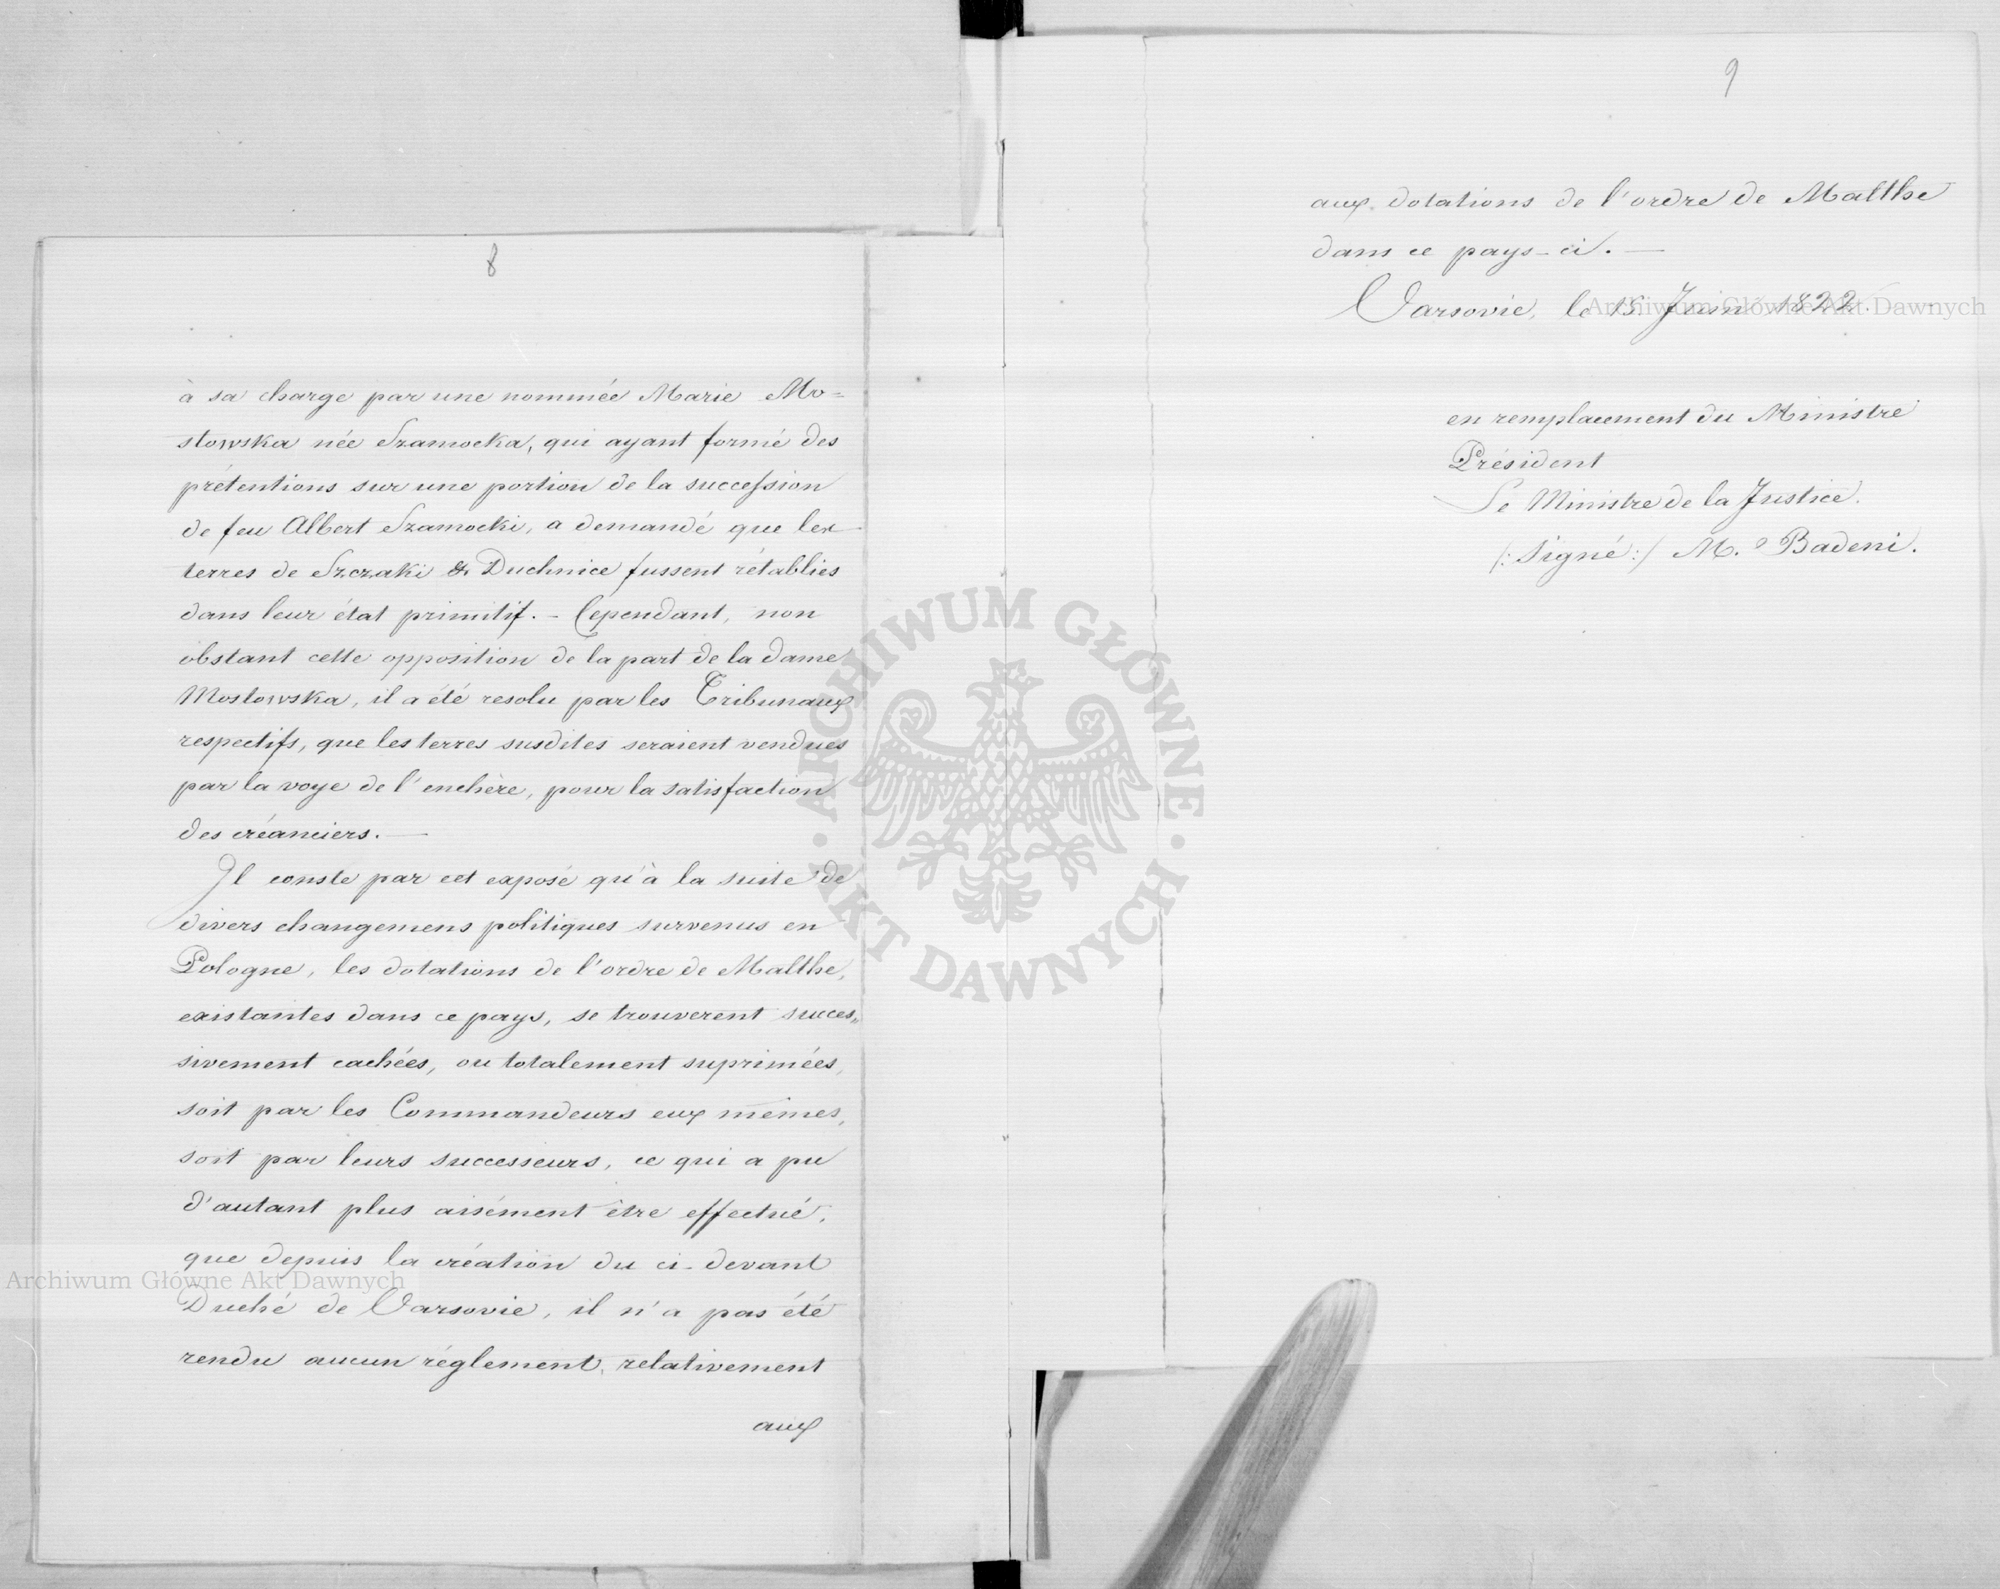 8
à sa charge par une nommée Marie Mo=
stowska née Szamocka, qui ayant formé des
prétentions sur une portion de la succession
de feu Albert Szamocki, a demandé que les
terres de Szczaki & Duchnice fussent rétablies
dans leur état primitif. – Cependant, non
obstant cette opposition de la part de la dame
Mostowska, il a été resolu par les Tribunaux
respectifs, que les terres susdites seraient vendues
par la voye de l'enchère, pour la satisfaction
des créanciers. —
Il conste par cet exposé qu'à la suite de
divers changemens politiques survenus en
Pologne, les dotations de l'ordre de Malthe,
existantes dans ce pays, se trouverent succes„
sivement cachées, ou totalement suprimées,
soit par les Commandeurs eux mêmes,
soit par leurs successeurs, ce qui a pu
d'autant plus aisément être effectué,
que depuis la création du ci-devant
Duché de Varsovie, il n'a pas été
rendu aucun réglement, relativement
aux
9
aux dotations de l'ordre de Malthe
dans ce pays-ci. —
Varsovie, le 15 Juin 1822.
en remplacement du Ministre
Président
Le Ministre de la Justice.
/: Signé :/ M. Badeni.
Archiwum Główne Akt Dawnych
Archiwum Główne Akt Dawnych
ARCHIWUM GŁÓWNE · AKT DAWNYCH ·